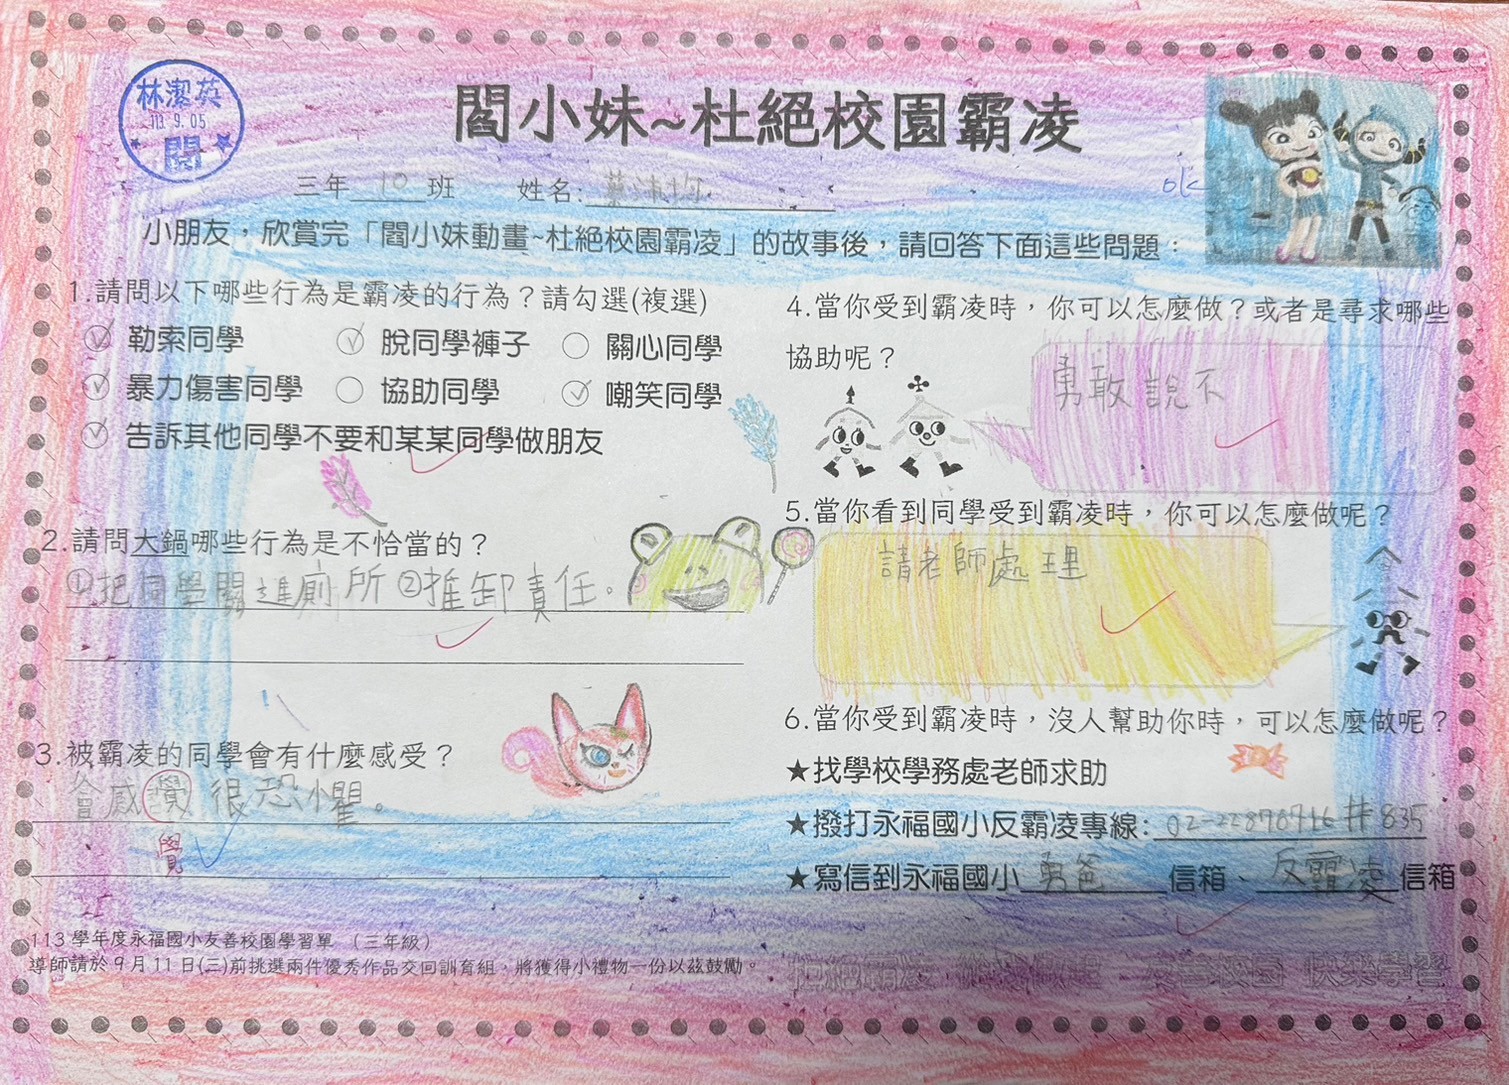 林潔英
113. 9. 05
閱
閻小妹~杜絕校園霸凌
三年 10 班 姓名:
ok
小朋友，欣賞完「閻小妹動畫~杜絕校園霸凌」的故事後，請回答下面這些問題：
1.請問以下哪些行為是霸凌的行為？請勾選(複選)
✓ 勒索同學 ✓ 脫同學褲子 ○ 關心同學
✓ 暴力傷害同學 ○ 協助同學 ✓ 嘲笑同學
✓ 告訴其他同學不要和某某同學做朋友
2.請問大鍋哪些行為是不恰當的？
①把同學關進廁所②推卸責任。
3.被霸凌的同學會有什麼感受？
會感覺很恐懼。
覺
4.當你受到霸凌時，你可以怎麼做？或者是尋求哪些
協助呢？
勇敢說不
5.當你看到同學受到霸凌時，你可以怎麼做呢？
請老師處理
6.當你受到霸凌時，沒人幫助你時，可以怎麼做呢？
★找學校學務處老師求助
★撥打永福國小反霸凌專線：02-22878716#835
★寫信到永福國小 勇爸 信箱、反霸凌信箱
113 學年度永福國小友善校園學習單 （三年級）
導師請於 9 月 11 日(三)前挑選兩件優秀作品交回訓育組，將獲得小禮物一份以茲鼓勵。
拒絕霸凌 友善校園 快樂學習